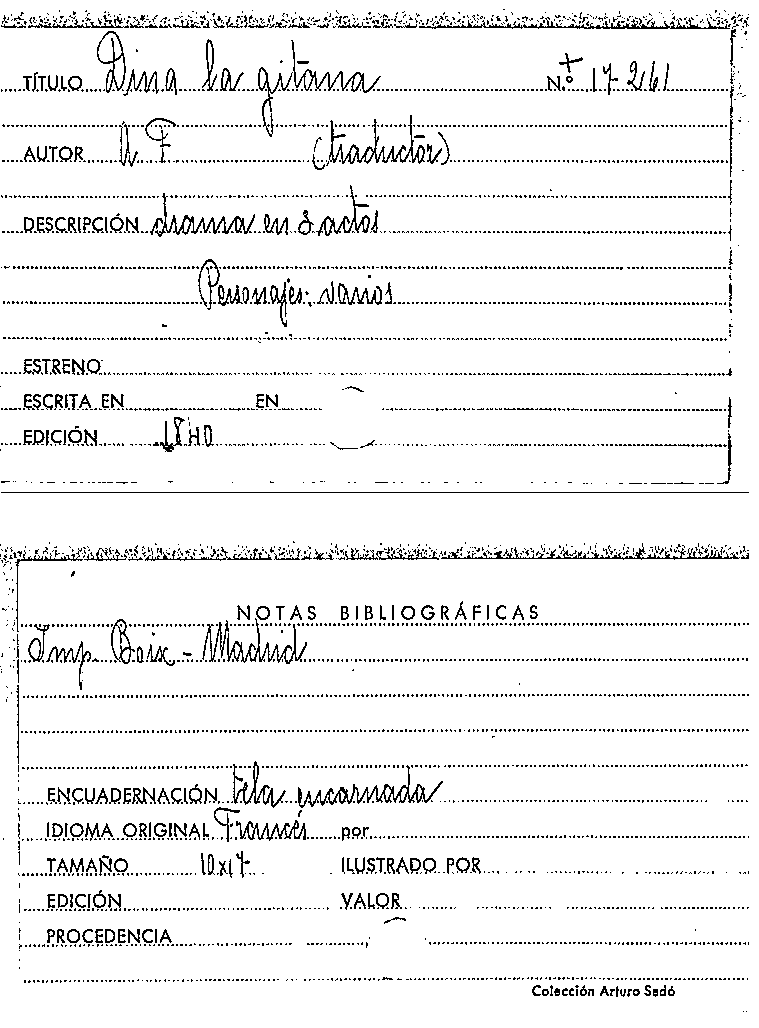 TÍTULO Dina la gitana N.º 17-261
AUTOR A F (traductor)
DESCRIPCIÓN drama en 3 actos
Personajes: varios
ESTRENO
ESCRITA EN EN
EDICIÓN 1840
NOTAS BIBLIOGRÁFICAS
Imp. Boix - Madrid
ENCUADERNACIÓN tela encarnada
IDIOMA ORIGINAL Francés por
TAMAÑO 10x17 ILUSTRADO POR
EDICIÓN VALOR
PROCEDENCIA
Colección Arturo Sedó